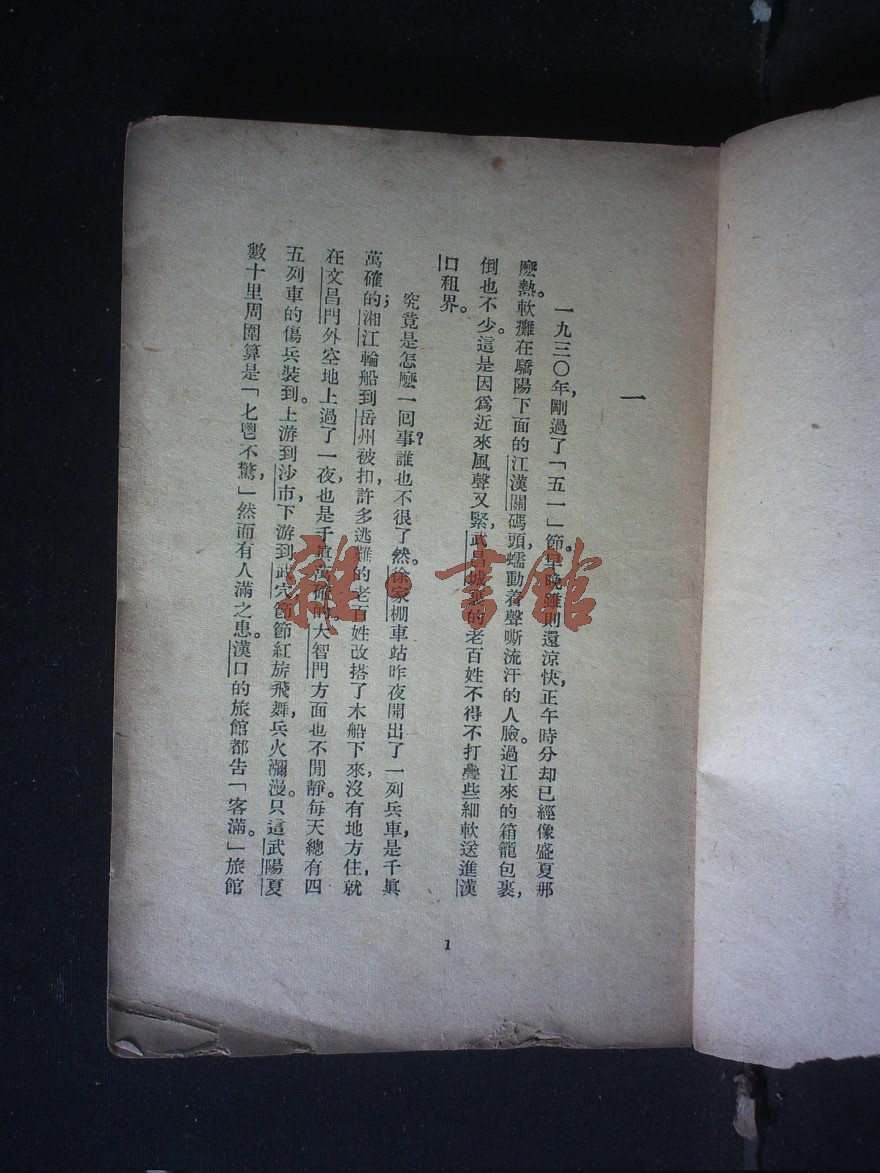 一
一九三〇年，剛過了「五一」節。早晚雖則還涼快，正午時分却已經像盛夏那
麼熱。軟癱在驕陽下面的江漢關碼頭，蠕動着聲嘶流汗的人臉。過江來的箱籠包裹，
倒也不少。這是因爲近來風聲又緊，武昌城裏的老百姓不得不打疊些細軟送進漢
口租界。
究竟是怎麼一回事？誰也不很了然。徐家棚車站昨夜開出了一列兵車，是千眞
萬確的；湘江輪船到岳州被扣，許多逃難的老百姓改搭了木船下來，沒有地方住，就
在文昌門外空地上過了一夜，也是千眞萬確的。大智門方面也不閒靜。每天總有四
五列車的傷兵裝到。上游到沙市，下游到武穴，節節紅旂飛舞，兵火瀰漫。只這武陽夏
數十里周圍算是「匕鬯不驚，」然而有人滿之患。漢口的旅館都告「客滿。」旅館
1
雜·書館